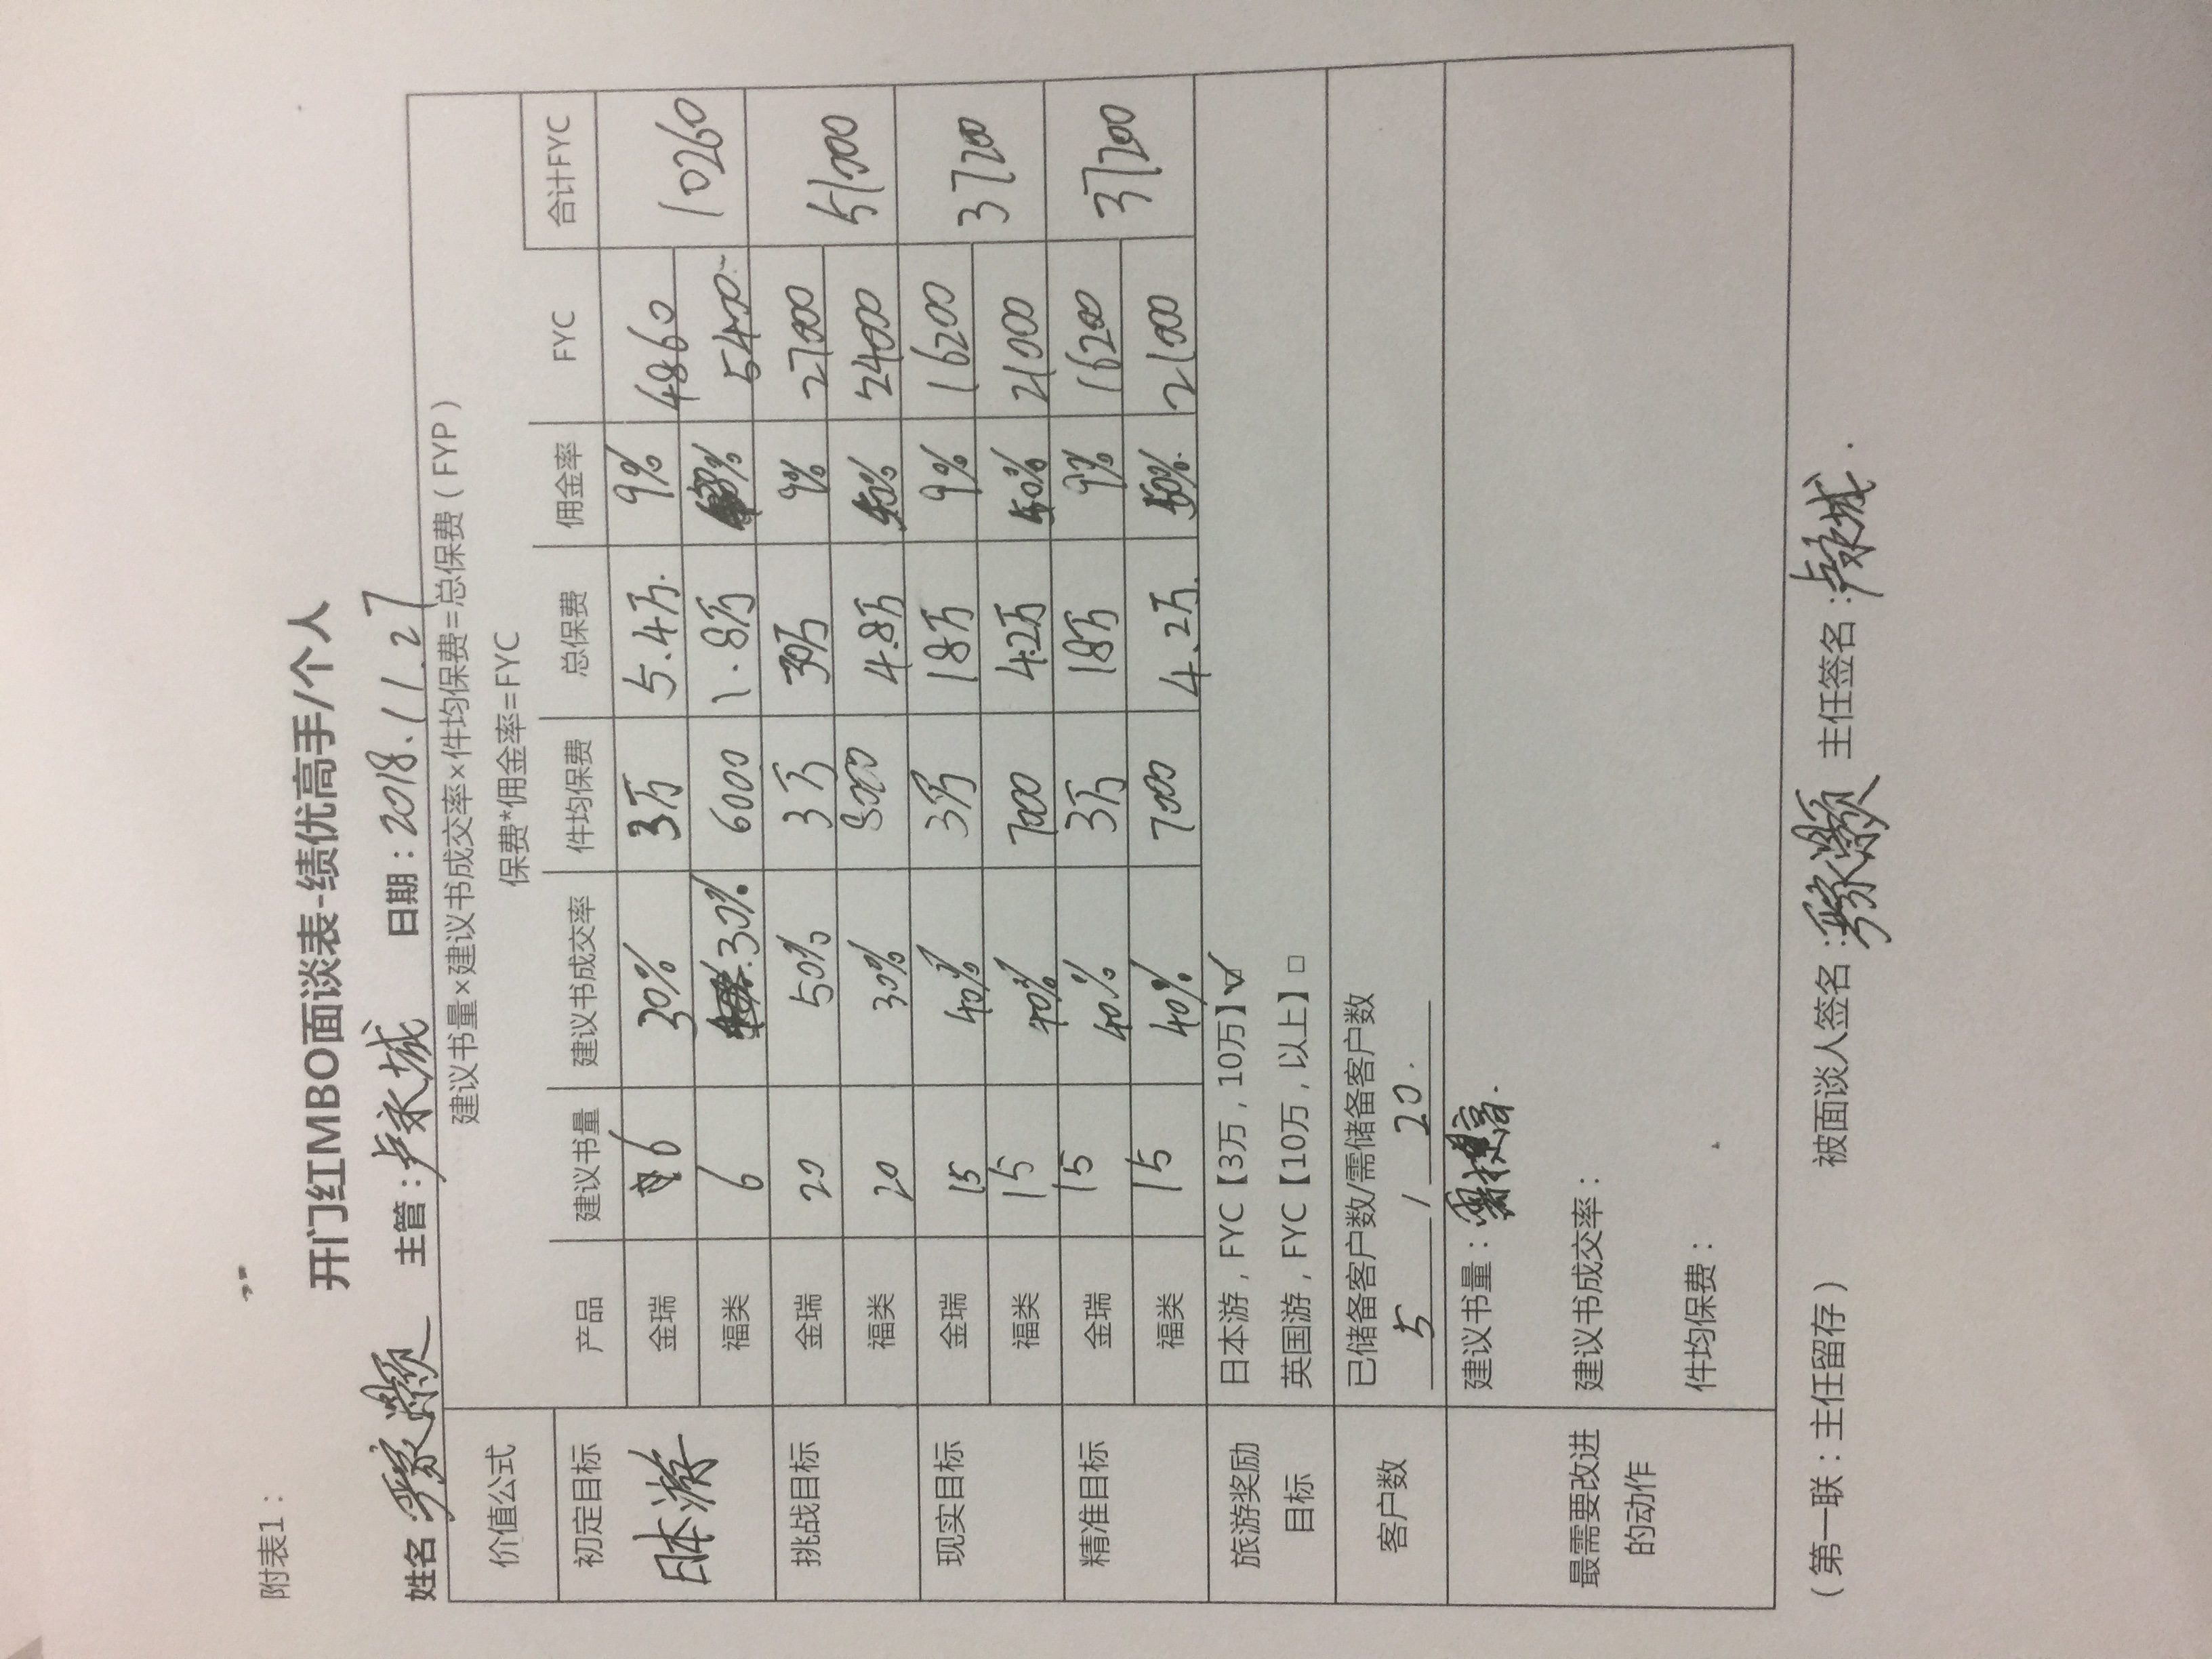 附表1：
开门红MBO面谈表-绩优高手/个人
姓名 主管：卢永城 日期：2018.11.27
价值公式 建议书量×建议书成交率×件均保费=总保费（FYP）
保费*佣金率=FYC
初定目标 产品 建议书量 建议书成交率 件均保费 总保费 佣金率 FYC 合计FYC
日本游 金瑞 6 30% 3万 5.4万 9% 4860 10260
福类 6 30% 6000 1.8万 5400
挑战目标 金瑞 20 50% 3万 30万 9% 27000 51000
福类 20 30% 8000 4.8万 50% 24000
现实目标 金瑞 15 40% 3万 18万 9% 16200 37200
福类 15 40% 7000 4.2万 50% 21000
精准目标 金瑞 15 40% 3万 18万 9% 16200 37200
福类 15 40% 7000 4.2万 50% 21000
旅游奖励目标 日本游，FYC【3万，10万】☑
英国游，FYC【10万，以上】□
客户数 已储备客户数/需储备客户数
5 / 20.
最需要改进的动作 建议书量：需提高.
建议书成交率：
件均保费：
（第一联：主任留存） 被面谈人签名： 主任签名：卢永城.